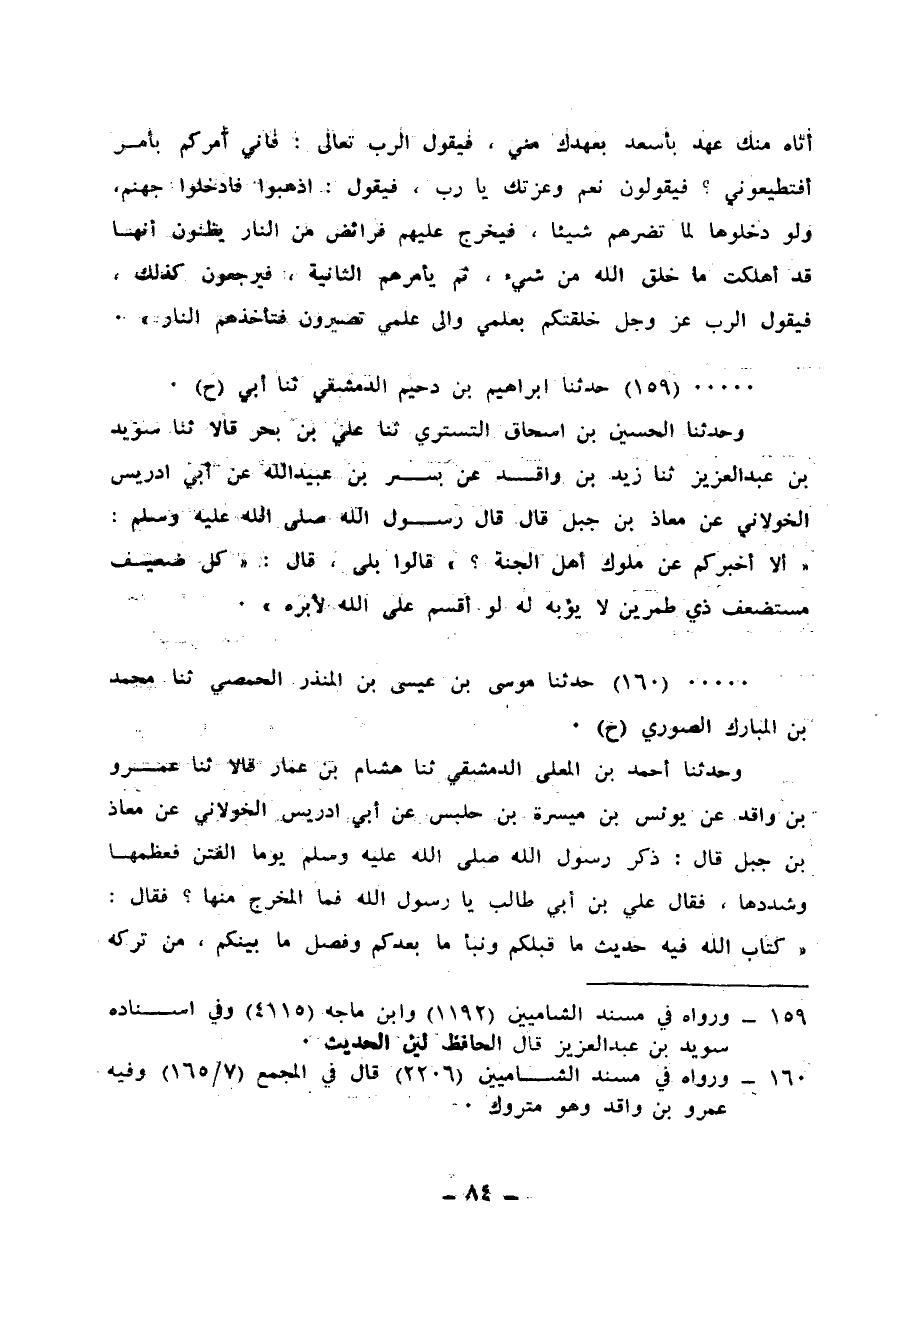 أتاه منك عهد بأسعد بعهدك مني ، فيقول الرب تعالى : فاني أمركم بأمر
أفتطيعوني ؟ فيقولون نعم وعزتك يا رب ، فيقول : اذهبوا فادخلوا جهنم،
ولو دخلوها لما تضرهم شيئا ، فيخرج عليهم فرائض من النار يظنون أنها
قد أهلكت ما خلق الله من شيء ، ثم يأمرهم الثانية ، فيرجعون كذلك ،
فيقول الرب عز وجل خلقتكم بعلمي والى علمي تصيرون فتأخذهم النار » ٠
٠٠٠٠٠ (١٥٩) حدثنا ابراهيم بن دحيم الدمشقي ثنا أبي (ح) ٠
وحدثنا الحسين بن اسحاق التستري ثنا علي بن بحر قالا ثنا سويد
بن عبدالعزيز ثنا زيد بن واقد عن بسر بن عبيدالله عن أبي ادريس
الخولاني عن معاذ بن جبل قال قال رسول الله صلى الله عليه وسلم :
« ألا أخبركم عن ملوك أهل الجنة ؟ » قالوا بلى ، قال : « كل ضعيف
مستضعف ذي طمرين لا يؤبه له لو أقسم على الله لأبره » ٠
٠٠٠٠٠ (١٦٠) حدثنا موسى بن عيسى بن المنذر الحمصي ثنا محمد
بن المبارك الصوري (ح) ٠
وحدثنا أحمد بن المعلى الدمشقي ثنا هشام بن عمار قالا ثنا عمرو
بن واقد عن يونس بن ميسرة بن حلبس عن أبي ادريس الخولاني عن معاذ
بن جبل قال : ذكر رسول الله صلى الله عليه وسلم يوما الفتن فعظمها
وشددها ، فقال علي بن أبي طالب يا رسول الله فما المخرج منها ؟ فقال :
« كتاب الله فيه حديث ما قبلكم ونبأ ما بعدكم وفصل ما بينكم ، من تركه
١٥٩ ـ ورواه في مسند الشاميين (١١٩٢) وابن ماجه (٤١١٥) وفي اسناده
سويد بن عبدالعزيز قال الحافظ لين الحديث ٠
١٦٠ ـ ورواه في مسند الشاميين (٢٢٠٦) قال في المجمع (١٦٥/٧) وفيه
عمرو بن واقد وهو متروك ٠
ـ ٨٤ ـ